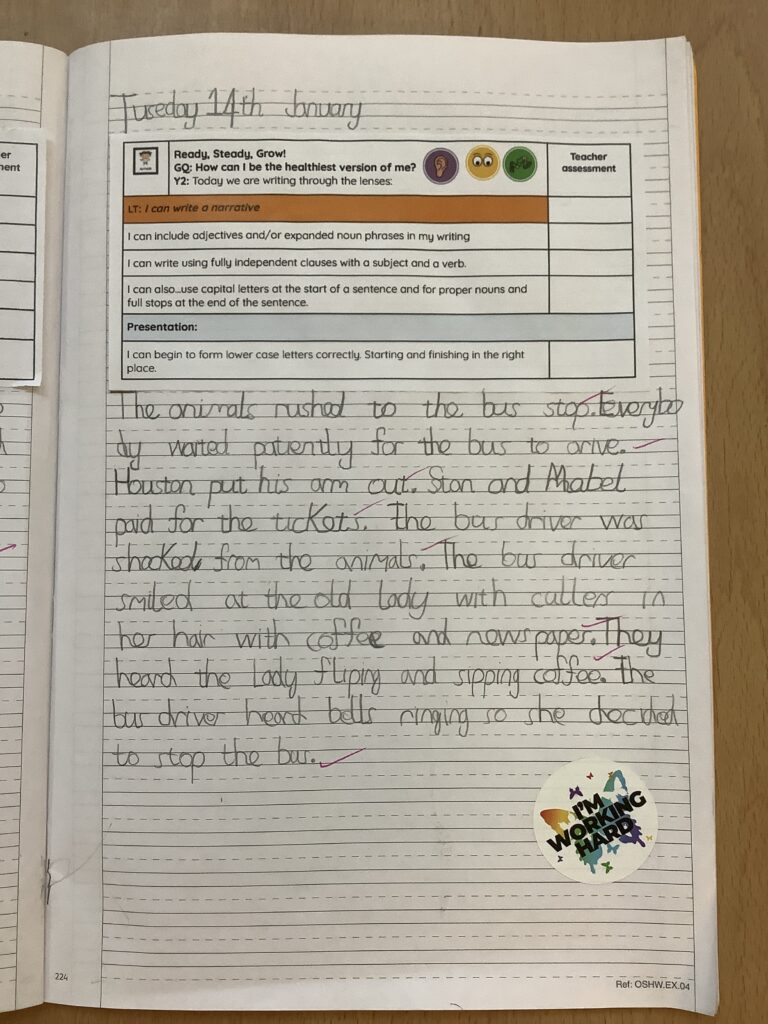 Tuseday 14th January
er
nent
Ready, Steady, Grow!
GQ: How can I be the healthiest version of me?
Y2: Today we are writing through the lenses:
Teacher
assessment
LT: I can write a narrative
I can include adjectives and/or expanded noun phrases in my writing
I can write using fully independent clauses with a subject and a verb.
I can also...use capital letters at the start of a sentence and for proper nouns and
full stops at the end of the sentence.
Presentation:
I can begin to form lower case letters correctly. Starting and finishing in the right
place.
The animals rushed to the bus stop. Everybo
dy waited patiently for the bus to arive.
Houston put his arm out. Stan and Mabel
paid for the tickets. The bus driver was
shocked from the animals. The bus driver
smiled at the old lady with culler in
her hair with coffee and newspaper. They
heard the lady fliping and sipping coffee. The
bus driver heard bells ringing so she decided
to stop the bus.
I'M
WORKING
HARD
224
Ref: OSHW.EX.04